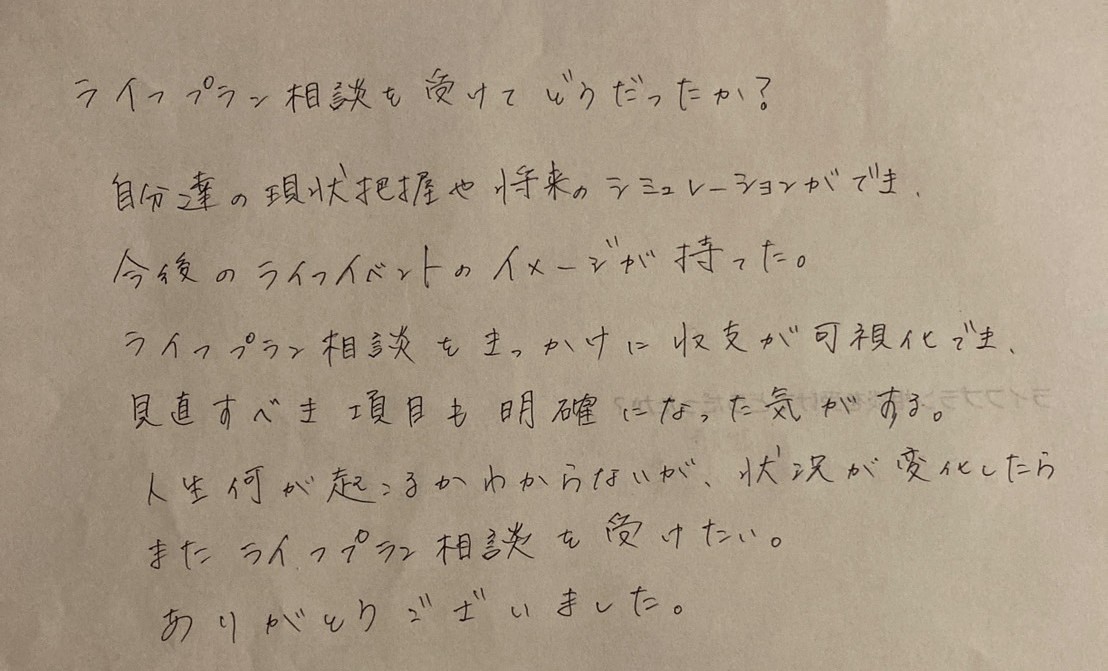 ライフプラン相談を受けてどうだったか?
自分達の現状把握や将来のシミュレーションができ、
今後のライフイベントのイメージが持てた。
ライフプラン相談をきっかけに収支が可視化でき、
見直すべき項目も明確になった気がする。
人生何が起こるかわからないが、状況が変化したら
またライフプラン相談を受けたい。
ありがとうございました。